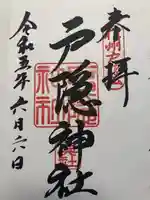 奉拝
戸隠神社
令和五年六月六日